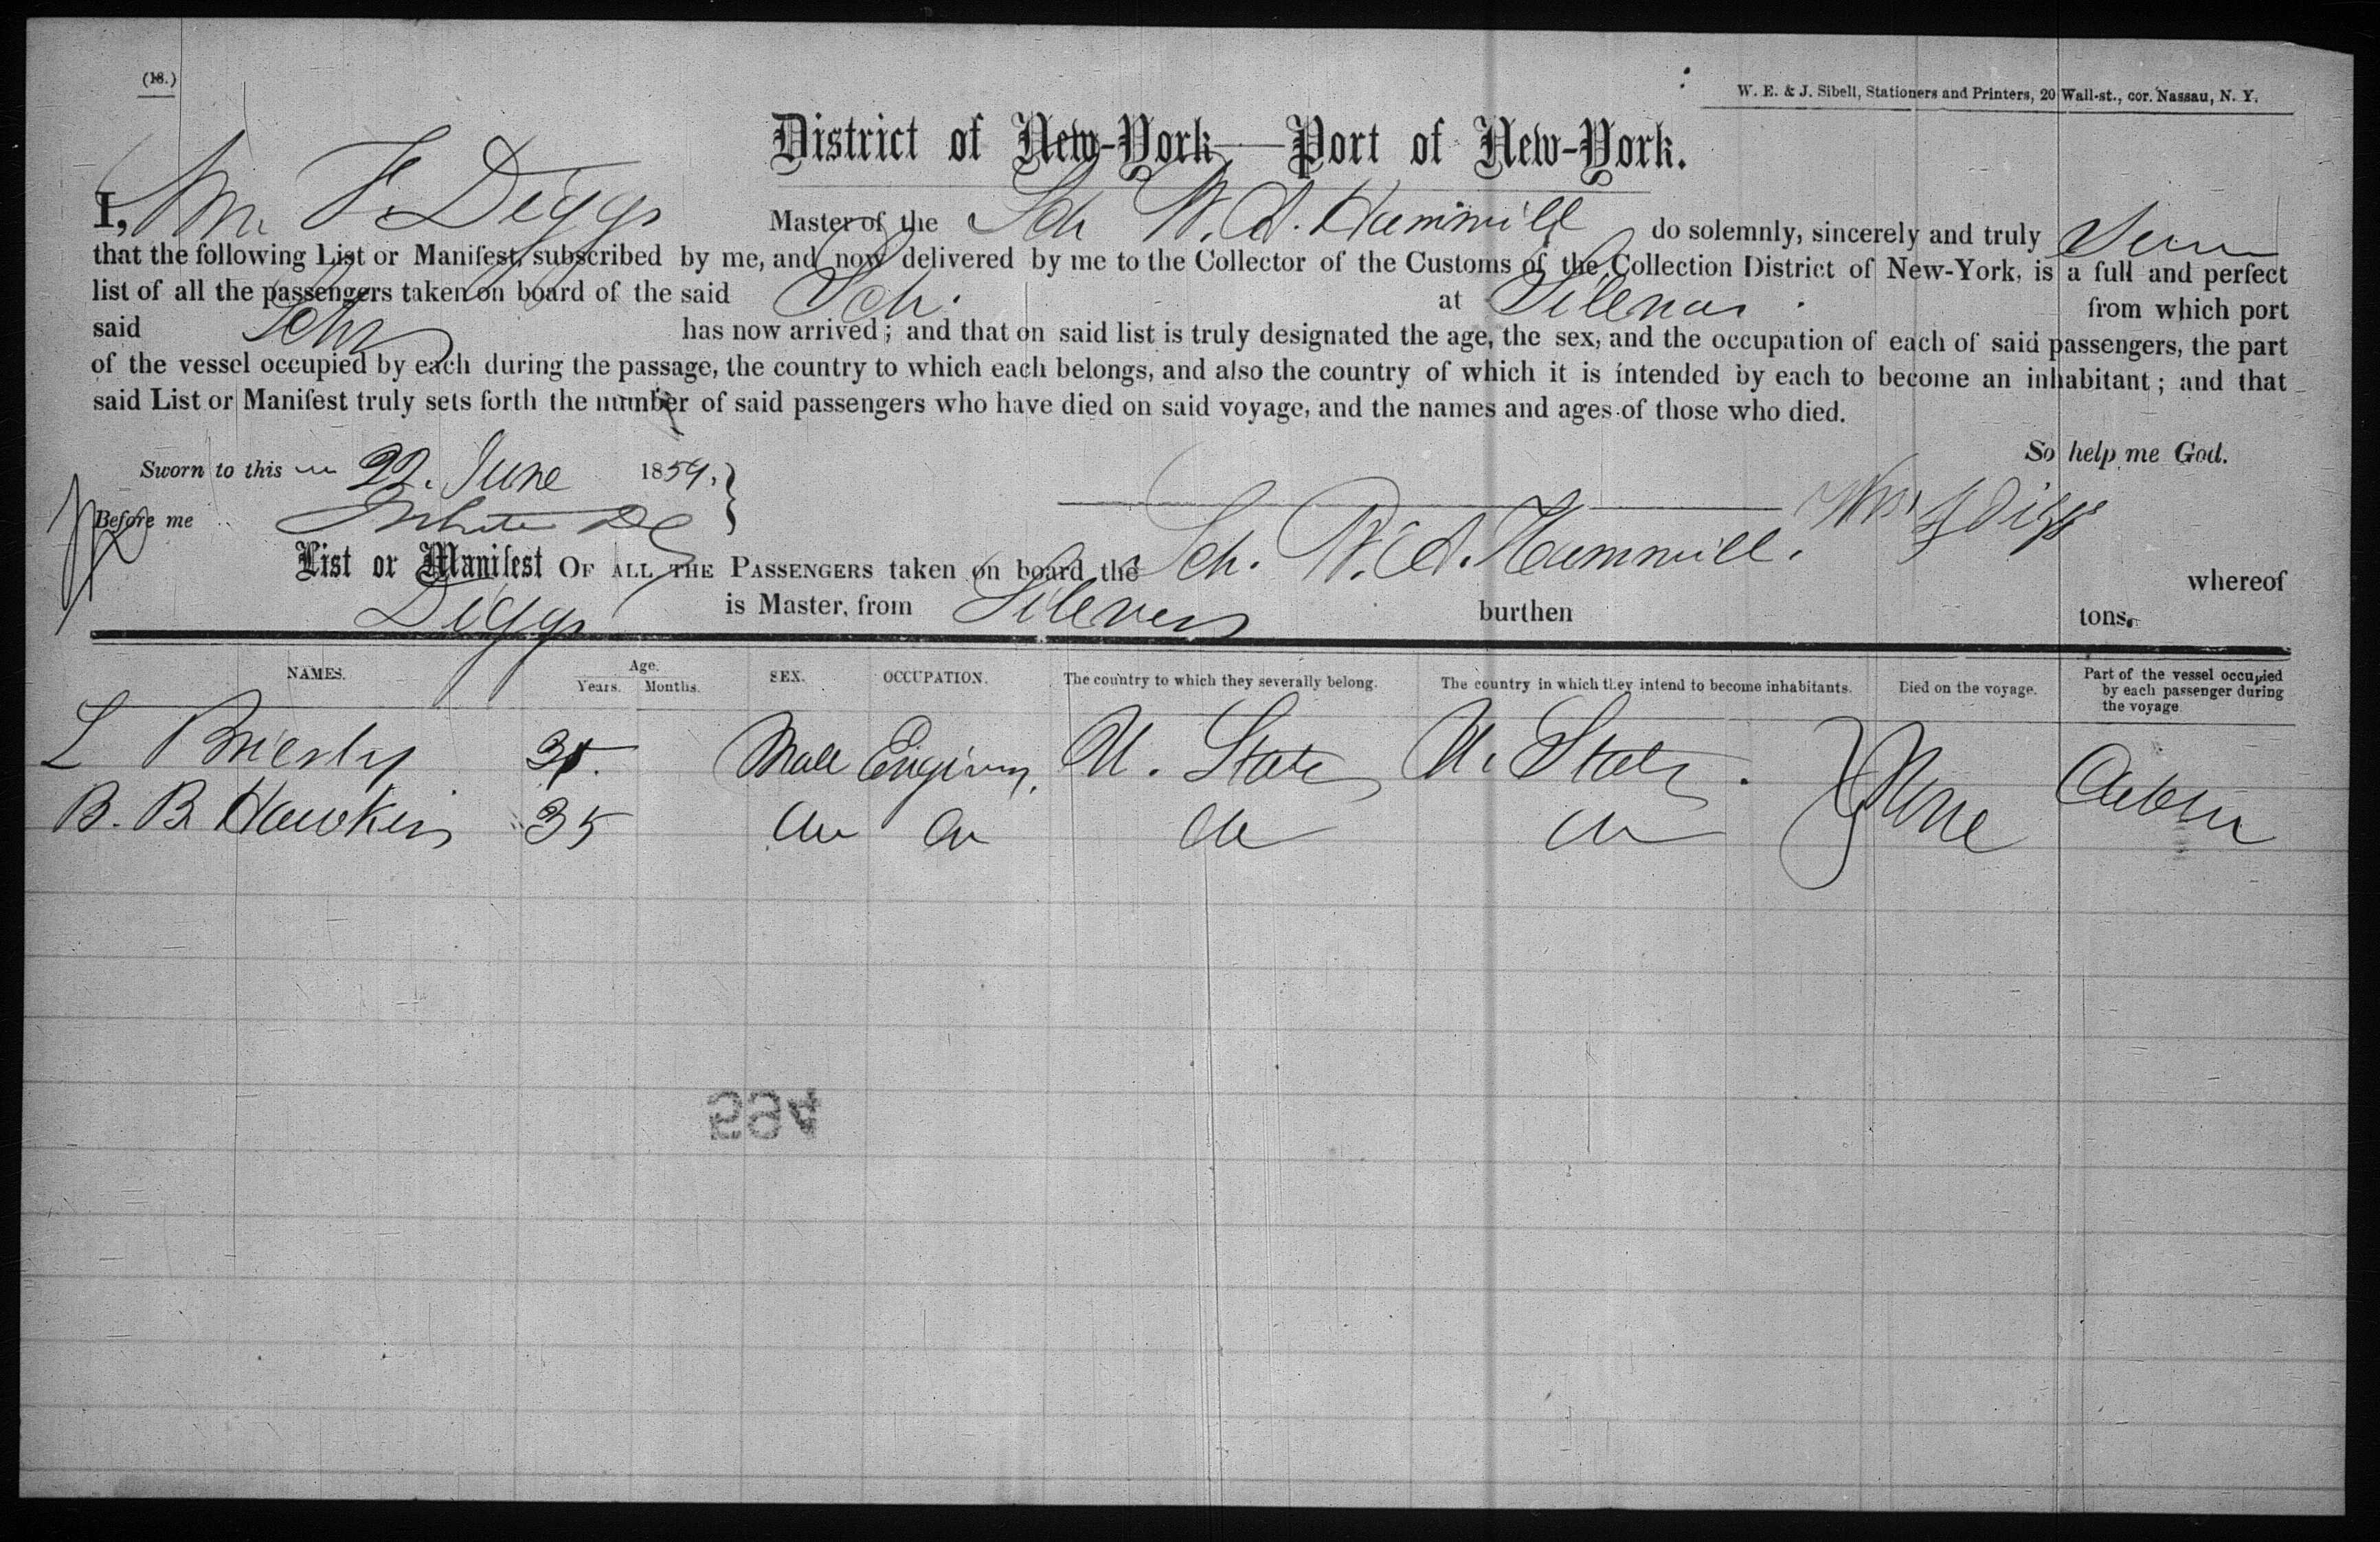 (18.)
W. E. & J. Sibell, Stationers and Printers, 20 Wall-st., cor. Nassau, N. Y.
District of New-York—Port of New-York.
I, Wm F. Diggs Master of the Sch W. A. Hammill do solemnly, sincerely and truly
that the following List or Manifest, subscribed by me, and now delivered by me to the Collector of the Customs of the Collection District of New-York, is a full and perfect
list of all the passengers taken on board of the said Sch. at from which port
said Schr has now arrived; and that on said list is truly designated the age, the sex, and the occupation of each of said passengers, the part
of the vessel occupied by each during the passage, the country to which each belongs, and also the country of which it is intended by each to become an inhabitant; and that
said List or Manifest truly sets forth the number of said passengers who have died on said voyage, and the names and ages of those who died.
So help me God.
Sworn to this 22. June 1859,
Before me
Wm F Diggs
List or Manifest OF ALL THE PASSENGERS taken on board the Sch. W. A. Hammill. whereof
Diggs is Master, from burthen tons.
NAMES. Age. Years. Months. SEX. OCCUPATION. The country to which they severally belong. The country in which they intend to become inhabitants. Died on the voyage. Part of the vessel occupied by each passenger during the voyage
L Brierly Male U. States U. States. None Cabin
B. B Hawkins 35 do do do do
594